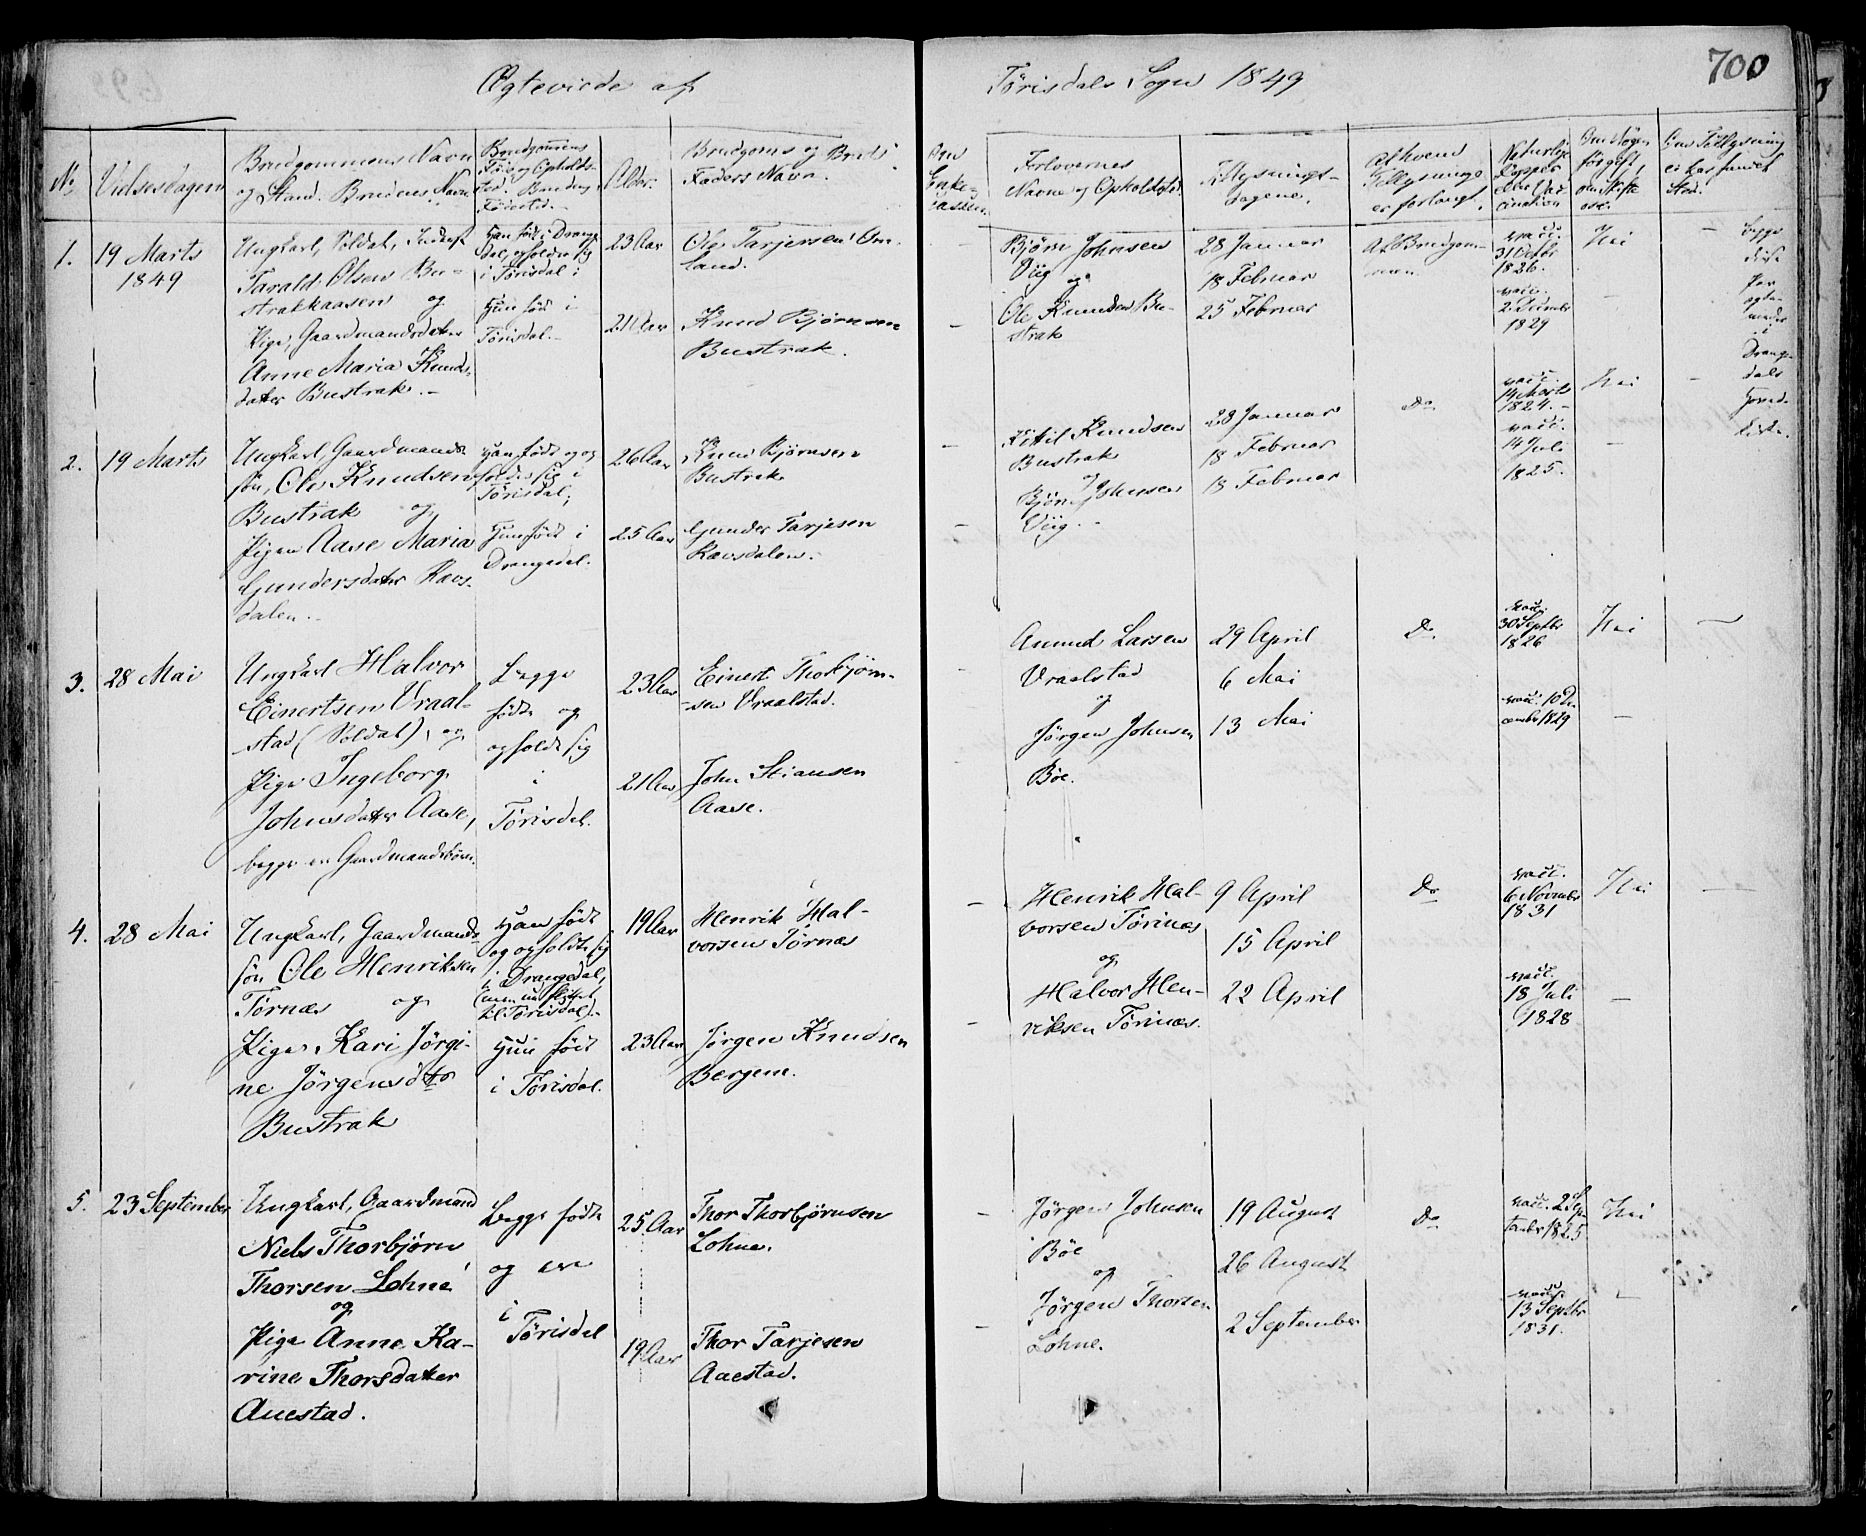 Ægteviede af Tørisdals Sogn 1849
700
No
Vielsesdagen
Brudgommens Navn
og Stand. Brudens Navn
Brudgommens
Føde og Opholds-
sted. Brudens
Fødested.
Alder.
Brudgoms og Bruds
Faders Navn.
Om
Enke-
Forlovernes
Navne og Opholdssted
Tillysnings-
dagene.
Af hvem
Tillysning
er forlangt.
Naturlige
Kopper
eller Vac-
cination
Om Tillysning
ei har fundet
Sted.
1.
19 Marts
1849
Ungkarl, Soldat,
Tarald Olsen Bu-
strakkaasen og
Pige, Gaardmandsdatter
Anne Maria Knuds-
datter Bustrak. -
Han født i Drange-
dal, opholder sig
i Tørisdal;
Hun født i
Tørisdal. -
23 Aar
21 Aar
Ole Tarjersen Om-
land.
Knud Bjørnsen
Bustrak.
Bjørn Johnsen
Viig
og
Ole Knudsen Bu-
strak
28 Januar
18 Februar
25 Februar
Af Brudgom-
men
vacc.
31 Octbr
1826.
vacc.
2 Decembr
1829
Nei
-
Begge
disse
Par
i
Drange-
dals
Hoved-
kirke.
2.
19 Marts
Ungkarl, Gaardmands-
søn, Ole Knudsen
Bustrak og
Pigen Aase Maria
Gundersdatter Ravs-
dalen. -
Han født og op-
holder sig i
Tørisdal;
Hun født i
Drangedal.
26 Aar
25 Aar
Knud Bjørnsen
Bustrak
Gunder Tarjesen
Ravsdalen. -
Kittil Knudsen
Bustrak
og
Bjørn Johnsen
Viig. -
28 Januar
18 Februar
18 Februar
Do
vacc.
14 Marts
1824. -
vacc.
14 Juli
1825.
Nei
-
3.
28 Mai
Ungkarl Halvor
Einertsen Vraal-
stad (Soldat), og
Pige Ingeborg
Johnsdatter Aase,
begge ere Gaardmandsbørn.
Begge
fødte og
opholdt sig
i
Tørisdal.
23 Aar
21 Aar
Einert Thorbjørn-
-sen Vraalstad.
John Stiansen
Aase.
Amund Larsen
Vraalstad
og
Jørgen Johnsen
Bøe.
29 April
6 Mai
13 Mai
Do
vacc.
30 Septbr
1826
vacc. 10 De-
cembr 1829
Nei
-
4.
28 Mai
Ungkarl, Gaardmands-
søn Ole Henriksen
Tørnæs og
Pige Kari Jørgi-
ne Jørgensdtr
Bustrak
Han født
og opholdt sig
i Drangedal,
(men nu flyttet
til Tørisdal). -
Hun født
i Tørisdal.
19 Aar
23 Aar
Henrik Hal-
vorsen Tørnæs
Jørgen Knudsen
Bergene.
Henrik Hal-
vorsen Tørinæs
og
Halvor Hen-
riksen Tørinæs.
9 April
15 April
22 April
Do
vacc.
6 Novembr
1831
vacc.
18 Juli
1828
Nei
-
5.
23 September
Ungkarl, Gaardmand
Niels Thorbjørn
Thorsen Lohne
og
Pige Anne Ka-
rine Thorsdatter
Auestad.
Begge fødte
og ere
i
Tørisdal
25 Aar
19 Aar
Thor Thorbjørnsen
Lohne.
Thor Tarjesen
Auestad.
Jørgen Johnsen
Bøe
og
Jørgen Thorsen
Lohne.
19 August
26 August
2 September
Do
vacc. 2 Sep-
tembr 1825
vacc.
13 Septbr
1831.
Nei
-